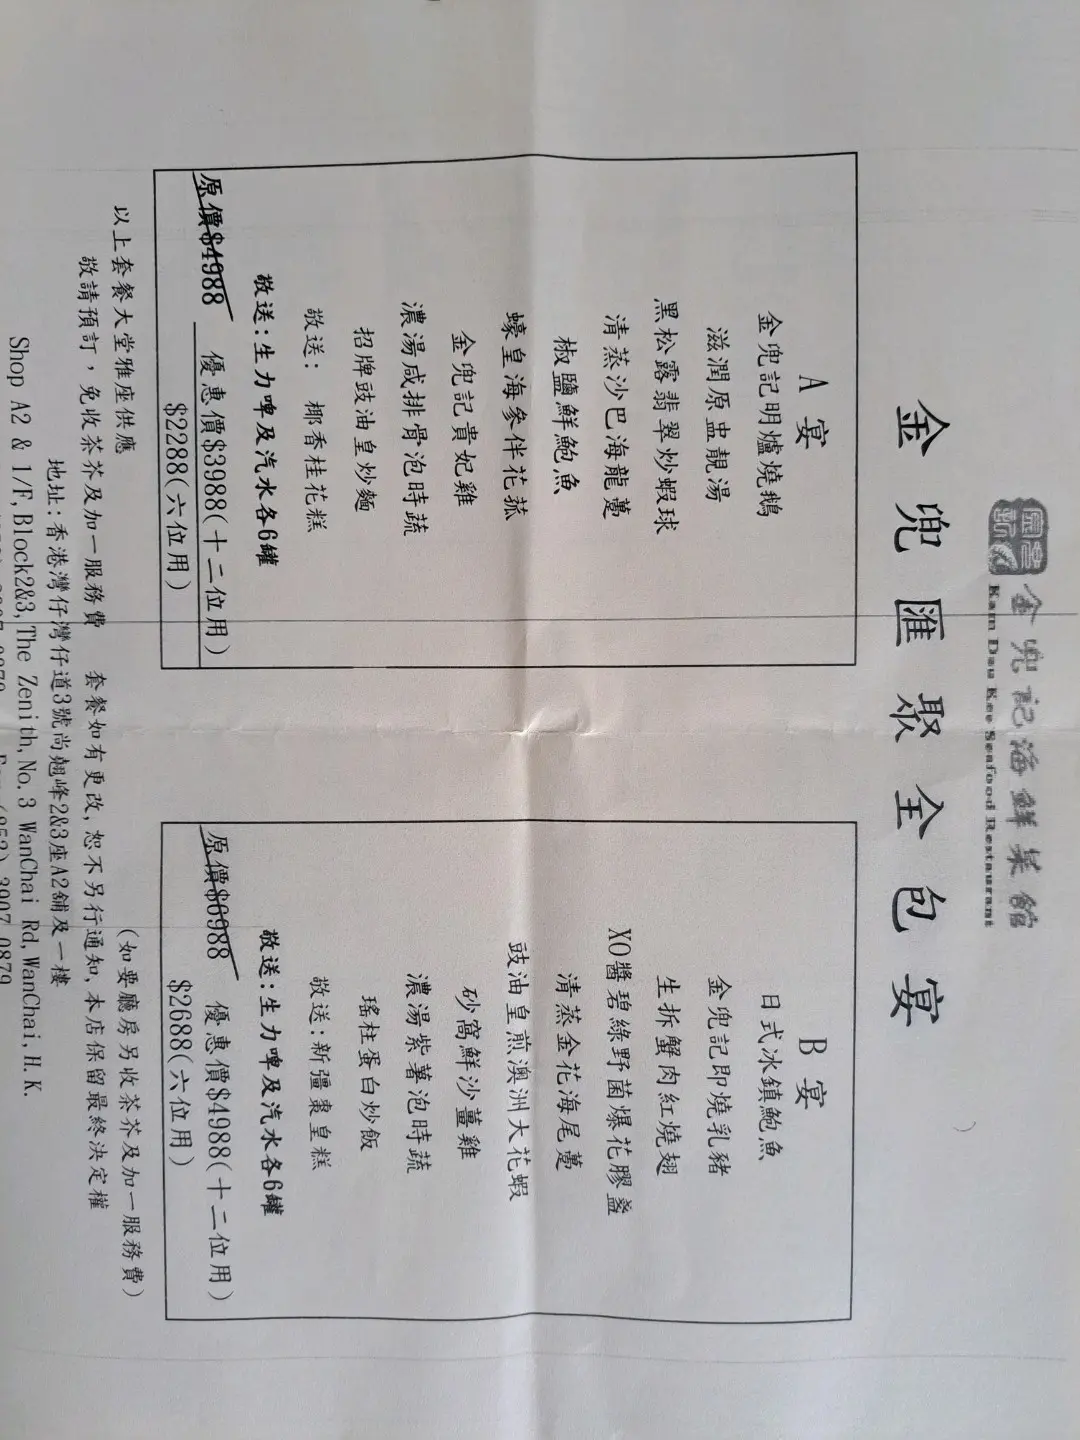 金兜記海鮮菜館
Kam Dau Kee Seafood Restaurant
金兜匯聚全包宴
A 宴
金兜記明爐燒鵝
滋潤原盅靚湯
黑松露翡翠炒蝦球
清蒸沙巴海龍躉
椒鹽鮮鮑魚
蠔皇海參伴花菰
金兜記貴妃雞
濃湯咸排骨泡時蔬
招牌豉油皇炒麵
敬送: 椰香桂花糕
敬送:生力啤及汽水各6罐
原價$4988 優惠價$3988(十二位用)
$2288(六位用)
B 宴
日式冰鎮鮑魚
金兜記即燒乳豬
生拆蟹肉紅燒翅
XO醬碧綠野菌爆花膠盞
清蒸金花海尾躉
豉油皇煎澳洲大花蝦
砂窩鮮沙薑雞
濃湯紫薯泡時蔬
瑤柱蛋白炒飯
敬送:新疆棗皇糕
敬送:生力啤及汽水各6罐
原價$6988 優惠價$4988(十二位用)
$2688(六位用)
以上套餐大堂雅座供應 (如要廳房另收茶芥及加一服務費)
敬請預訂，免收茶芥及加一服務費 套餐如有更改,恕不另行通知,本店保留最終決定權
地址:香港灣仔灣仔道3號尚翹峰2&3座A2舖及一樓
Shop A2 & 1/F,Block2&3,The Zenith,No.3 WanChai Rd,WanChai,H.K.